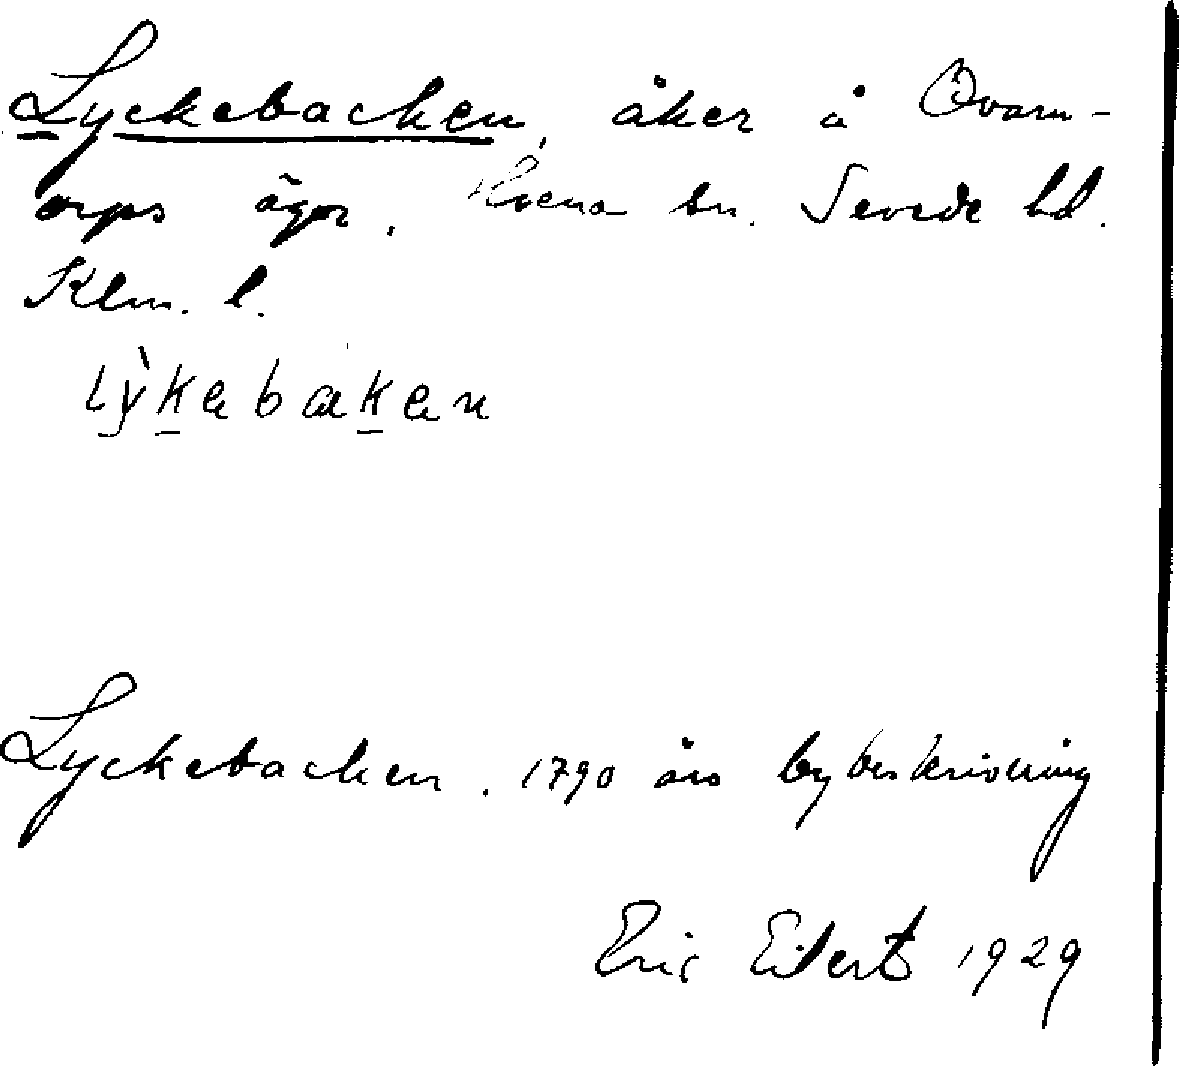 Lyckebacken, åker å Ovarn-
orps ägor. Hvena sn. Sevede hd.
Klm. l.
lỳkebaken
Lyckebacken. 1790 års bybeskrivning
Eric Eilert 1929